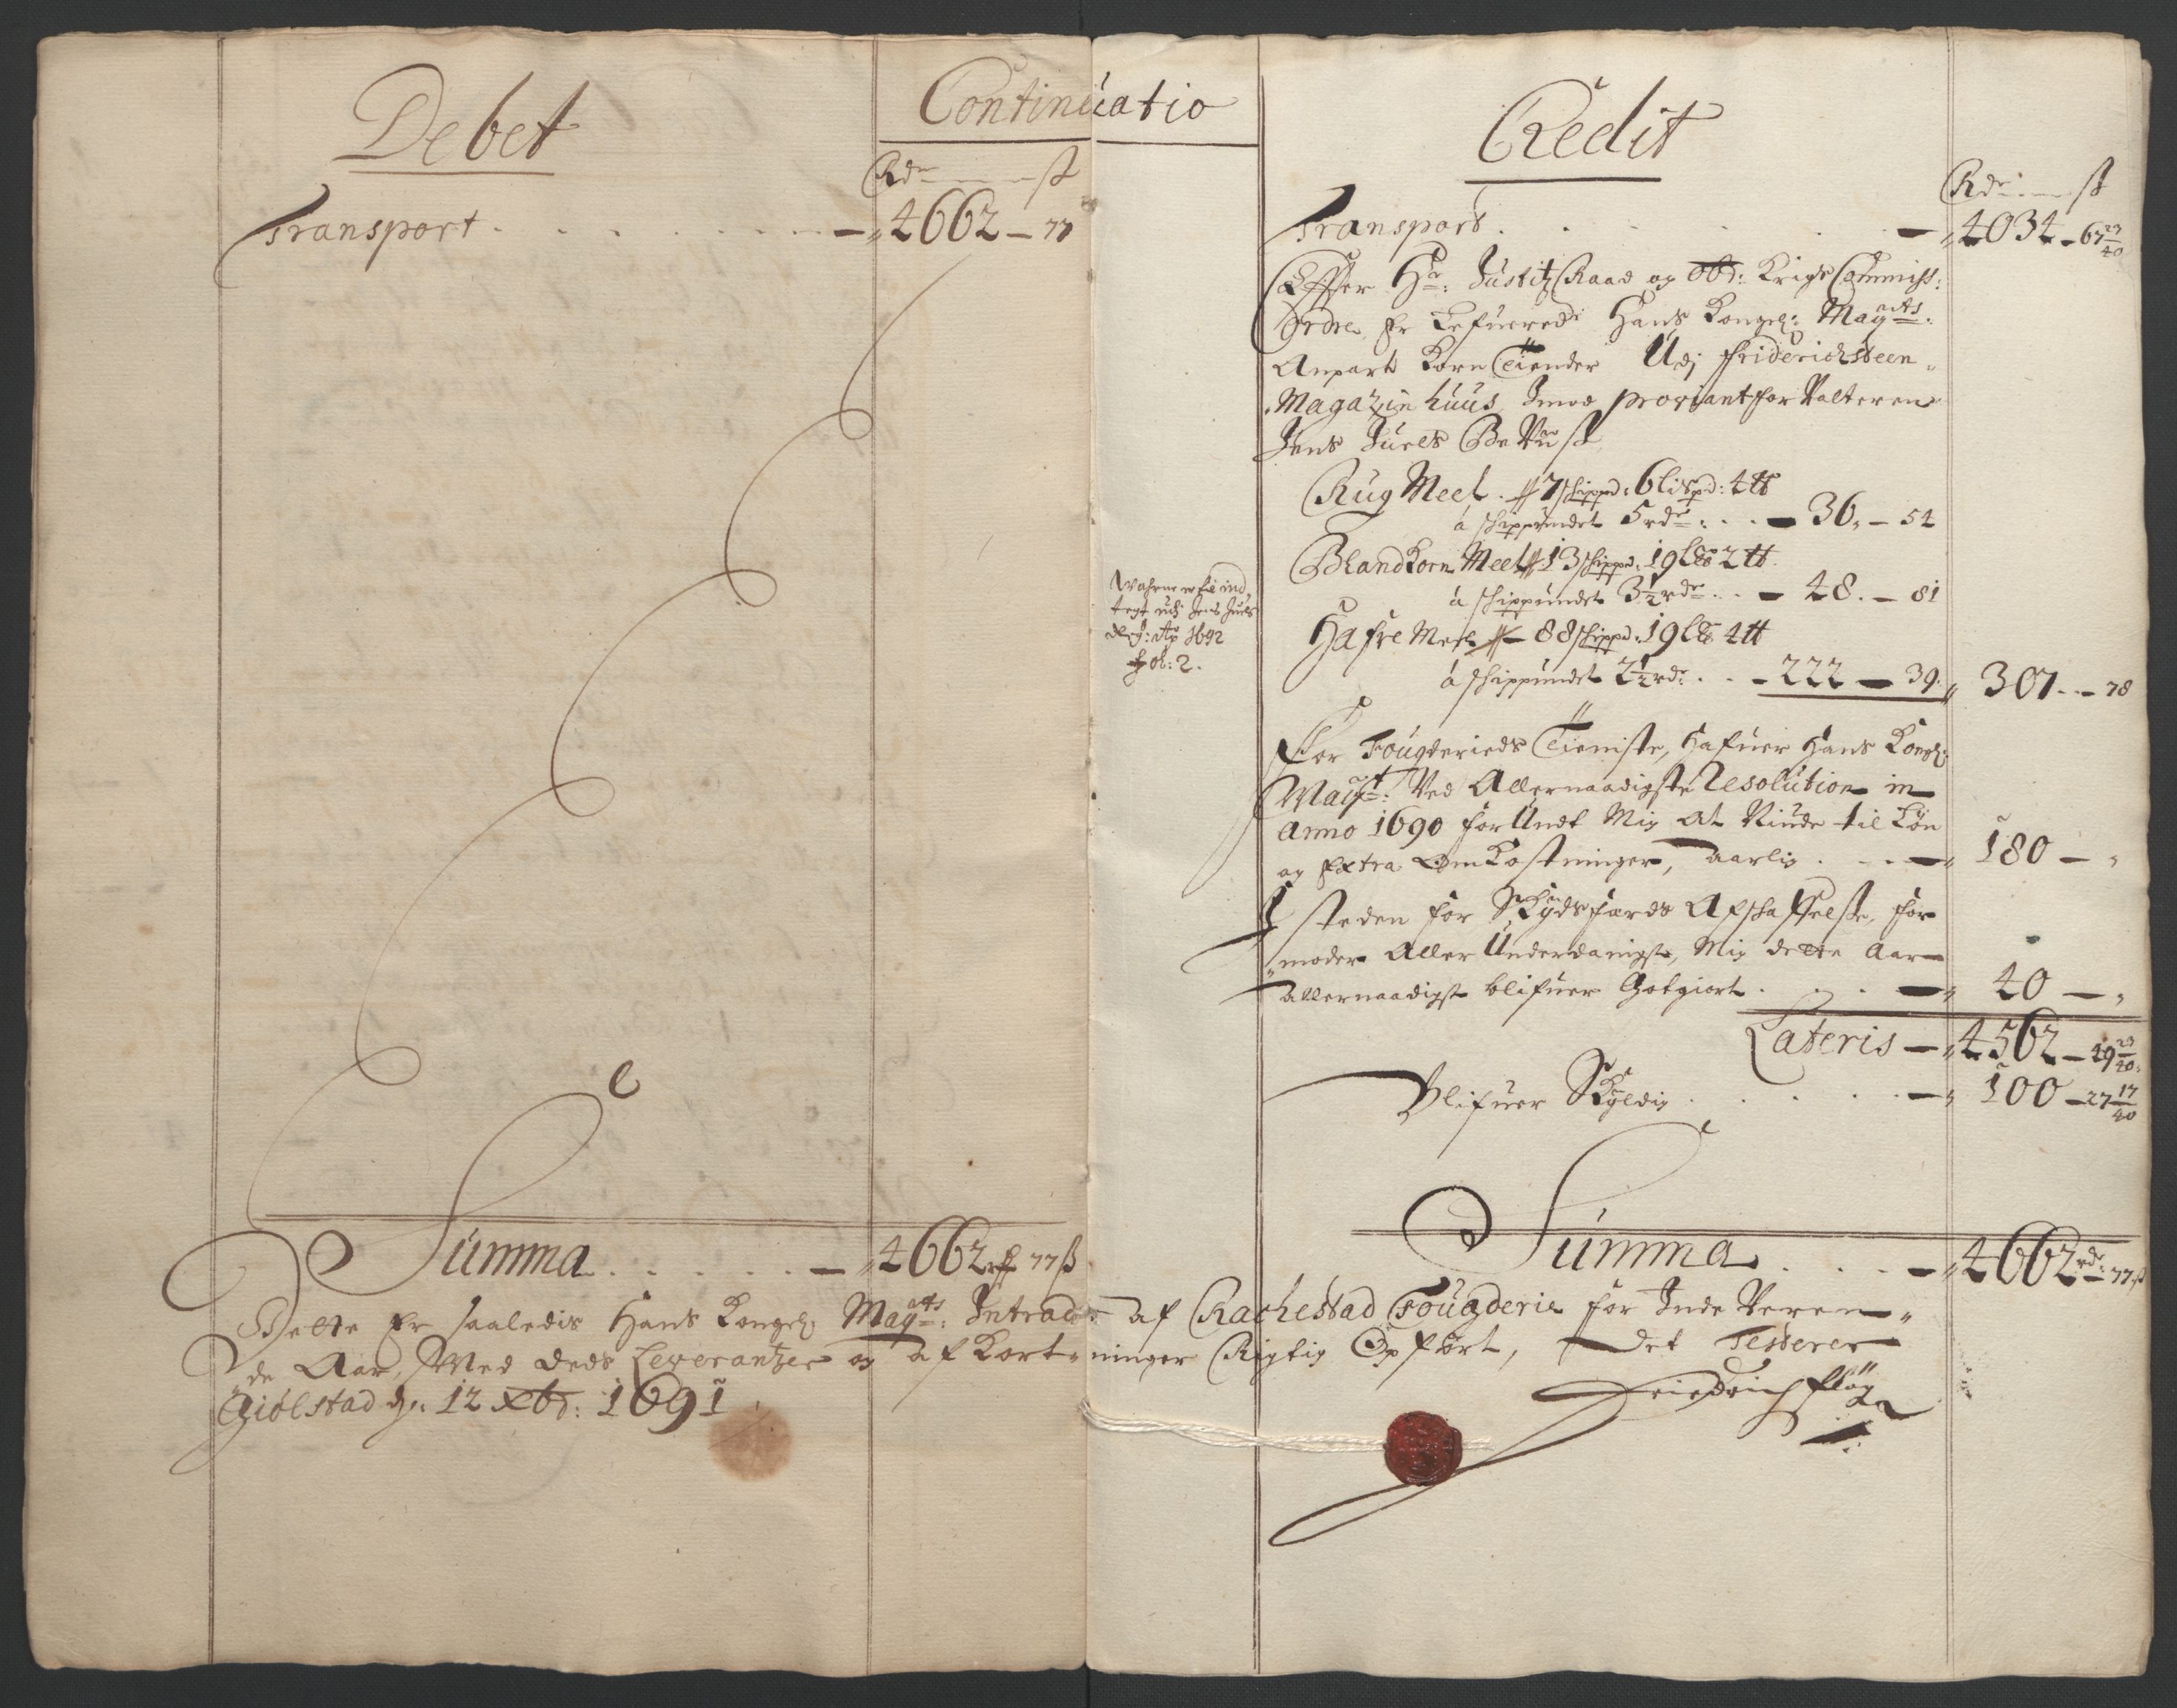 Continuatio
Debet
Rdr ß
Transport . . . . . . . — 4662 — 77
Summa . . . . . — 4662 rß 77 ß
Credit
Rdr ß
Transport . . . . . — 4034 - 67 23/40
Effter Hr: Justitz Raad og Obr: Krigs Commiss:
Ordre Er Lefuered Hans Kongel: Mayts:
Anpart Korn Tiender Udj Friderichsteen
Magazin huus Imod Proviantforvalteren
Jens Juels Beviiß
Rug Meel . 7 schippd: 6 lispd: 4 ℔
á schippundet 5 rdr: . . . — 36 . — 54
Blandkorn Meel 13 schippd: 19 L℔ 2 ℔
á schippundet 3½ rdr . . — 48 . — 81
Hafre Meel 88 schippd: 19 L℔ 4 ℔
á schippundet 2½ rdr . . — 222 — 39 . 307 . — 78
Wahrne er til ind
tegt udj Jens Juels
1692
Fol: 2.
For Fougderieds Tieniste, hafuer Hans Kongl:
Mayt: Ved Allernaadigste Resolution in
Anno 1690 forUndt Mig at Niude til Løn
og Extra Omkostninger, aarlig . . . — 180 —
I steden for Skydsferds Afschaffelse, for
moder Aller Underdanigst, Mig dette Aar
allernaadigst blifuer Gotgiort . . . — 40 —
Lateris — 4562 — 49 23/40
Blifuer Skyldig . . . . . — 100 — 27 17/40
Summa . . . — 4662 rdr: 77 ß
Dette Er saaledis Hans Kongel: Mayts: Intrader af Rachestad Fougderie for Inde Veren
de Aar, Med deds Leverantzer og af Kort ninger Rigtig Opført, Det Testerer
Giølstad dn: 12 Xbr: 1691
Friedrich Fløg